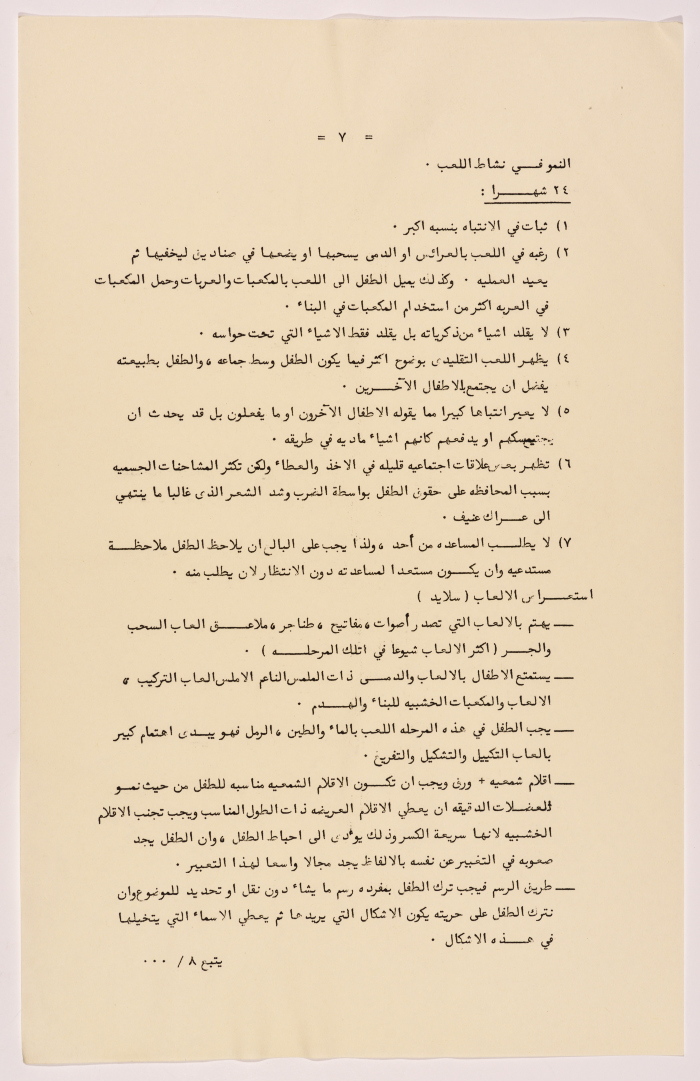 = ٧ =
النمو فــي نشاط اللعب ٠
٢٤ شهــــرا :
١) ثبات في الانتباه بنسبه اكبر ٠
٢) رغبه في اللعب بالعرائس او الدمى يسحبها او يضعها في صناديق ليخفيها ثم
يعيد العمليه ٠ وكذلك يميل الطفل الى اللعب بالمكعبات والعربات وحمل المكعبات
في العربه اكثر من استخدام المكعبات في البناء ٠
٣) لا يقلد اشياء من ذكرياته بل يقلد فقط الاشياء التي تحت حواسه ٠
٤) يظهر اللعب التقليدى بوضوح اكثر فيما يكون الطفل وسط جماعه ، والطفل بطبيعته
يفضل ان يجتمع بالاطفال الآخــرين ٠
٥) لا يعير انتباها كبيرا مما يقوله الاطفال الآخرون او ما يفعلون بل قد يحدث ان
يمسكهم او يدفعهم كانهم اشياء ماديه في طريقه ٠
٦) تظهر بعض علاقات اجتماعيه قليله في الاخذ والعطاء ولكن تكثر المشاحنات الجسميه
بسبب المحافظه على حقوق الطفل بواسطة الضرب وشد الشعر الذى غالبا ما ينتهي
الى عــراك عنيف ٠
٧) لا يطلــب المساعده من أحد ، ولذا يجب على البالغ ان يلاحظ الطفل ملاحظــة
مستدعيه وان يكــون مستعدا لمساعدته دون الانتظار لان يطلب منه ٠
استعــراض الالعاب ( سلايد )
ــ يهتم بالالعاب التي تصدر أصوات ، مفاتيح ، طناجر ، ملاعــق العاب السحب
والجــر ( اكثر الالعاب شيوعا في اتلك المرحلــه ) ٠
ــ يستمتع الاطفال بالالعاب والدمــى ذات الملمس الناعم الاملس العاب التركيب ،
الالعاب والمكعبات الخشبيه للبناء والهــدم ٠
ــ يجب الطفل في هذه المرحله اللعب بالماء والطين ، الرمل فهو يبــدى اهتمام كبير
بالعاب التكييل والتشكيل والتفريغ ٠
ــ اقلام شمعيه + ورق ويجب ان تكــون الاقلام الشمعيه مناسبه للطفل من حيث نمــو
العضــلات الدقيقه ان يعطي الاقلام العريضه ذات الطول المناسب ويجب تجنب الاقلام
الخشبيه لانها سريعة الكسر وذلك يؤدى الى احباط الطفل ، وان الطفل يجد
صعوبه في التعبير عن نفسه بالالفاظ يجد مجالا واسعا لهذا التعبير ٠
ــ طريق الرسم فيجب ترك الطفل بمفرده رسم ما يشاء دون نقل او تحديد للموضوع وان
نترك الطفل على حريته يكون الاشكال التي يريدها ثم يعطي الاسماء التي يتخيلها
في هــذه الاشكال ٠
يتبع ٨ / ٠٠٠